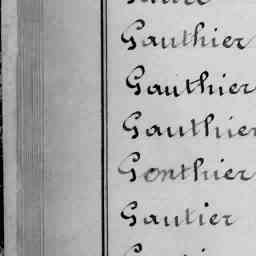 Gauthier
Gauthier
Gauthier
Gonthier
Gautier